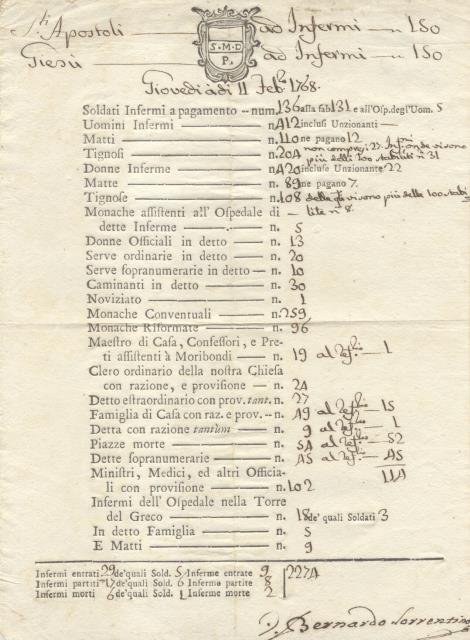 SS.ti Apostoli — ad Infermi — n 180
Giesù — ad Infermi — n 180
S. M. D
P.
Giovedì adì 11 Feb.° 1768.
Soldati Infermi a pagamento — num. 136 alla fab 131 e all'Osp. degl'Uom. 5
Uomini Infermi — n. 412 inclusi Unzionanti —
Matti — n. 110 ne pagano 12
Tignosi — n. 204 non compresi 22 Infermi onde vi sono più delli 100 stabiliti n. 31
Donne Inferme — n. 420 incluse Unzionante 22
Matte — n. 89 ne pagano 7.
Tignose — n. 108 delle quali vi sono più delle 100 stabilite n. 8.
Monache assistenti all' Ospedale di
dette Inferme — n. 5
Donne Officiali in detto — n. 13
Serve ordinarie in detto — n. 20
Serve sopranumerarie in detto — n. 10
Caminanti in detto — n. 30
Noviziato — n. 1
Monache Conventuali — n. 259
Monache Riformate — n. 96
Maestro di Casa, Confessori, e Pre-
ti assistenti à Moribondi — n. 19 — 1
Clero ordinario della nostra Chiesa
con razione, e provisione — n. 24
Detto estraordinario con prov. tant. n. 27
Famiglia di Casa con raz. e prov. — n. 49 — 15
Detta con razione tantùm — n. 9 — 1
Piazze morte — n. 54 — 52
Dette sopranumerarie — n. 45 — 45
Ministri, Medici, ed altri Officia- 114
li con provisione — n. 102
Infermi dell' Ospedale nella Torre
del Greco — n. 18 de' quali Soldati 3
In detto Famiglia — n. 5
E Matti — n. 9
Infermi entrati 29 de'quali Sold. 5 Inferme entrate 9 2274
Infermi partiti 17 de'quali Sold. 6 Inferme partite 8
Infermi morti 6 de'quali Sold. 1 Inferme morte 2
Bernardo Sorrentino